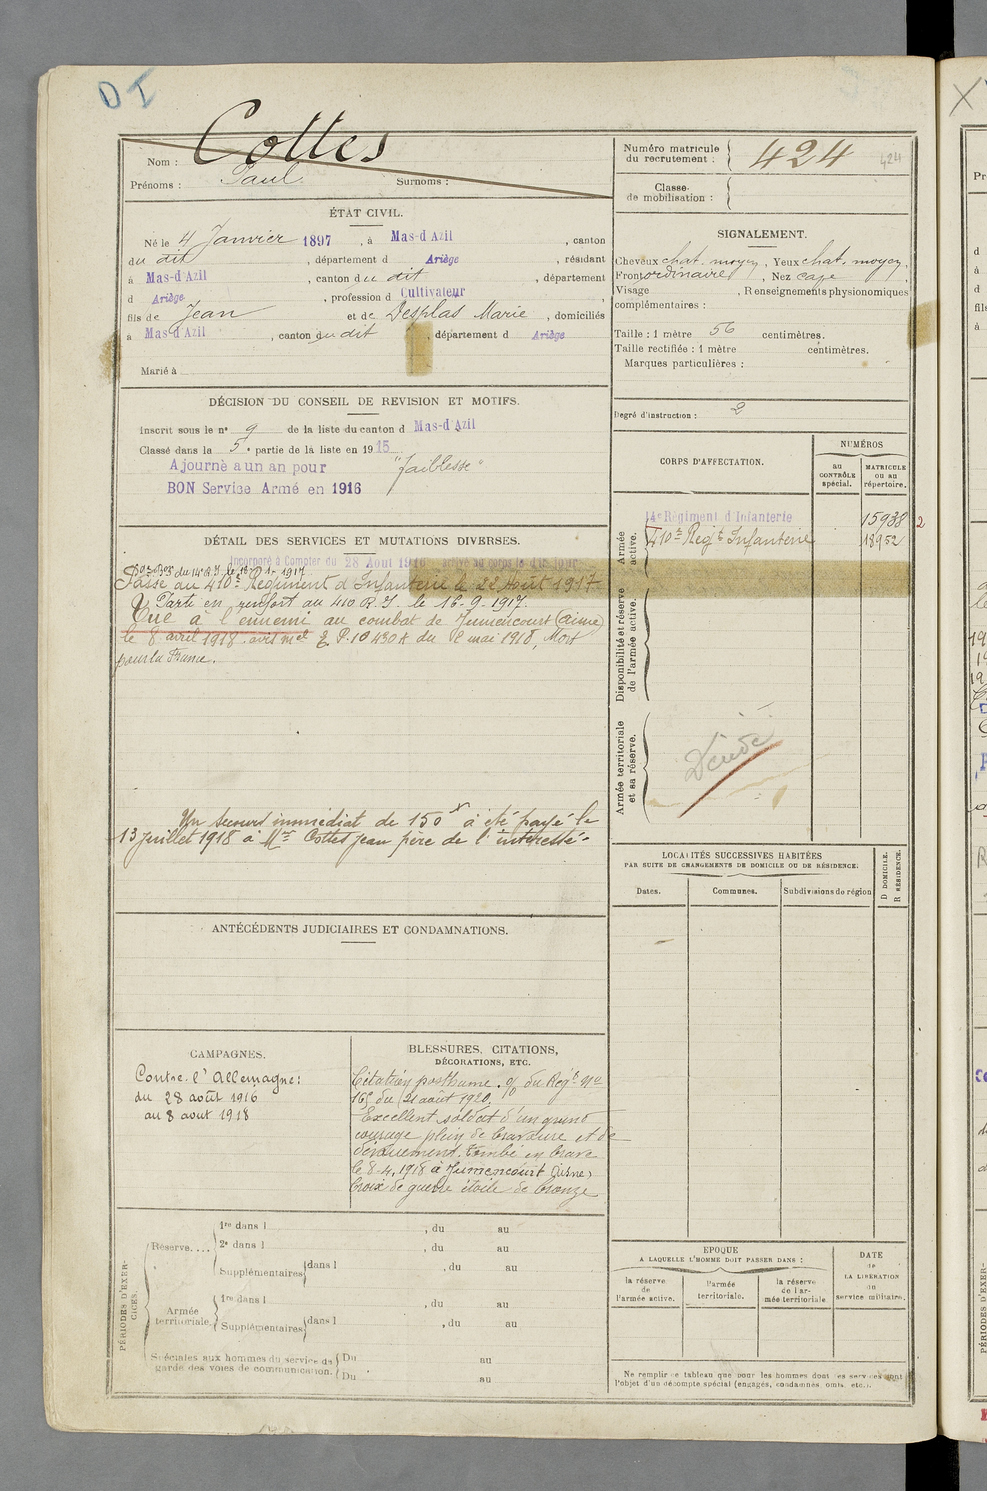 DI
Nom : Cottes
Prénoms : Paul Surnoms :
Numéro matricule du recrutement : 424 424
Classe de mobilisation :
ÉTAT CIVIL.
Né le 4 Janvier 1897, à Mas-d'Azil, canton
du dit, département d Ariège, résidant
à Mas-d'Azil, canton du dit, département
d Ariège, profession d Cultivateur,
fils de Jean et de Desplas Marie, domiciliés
à Mas-d'Azil, canton du dit, département d Ariège
Marié à
SIGNALEMENT.
Cheveux chat. moyen, Yeux chat. moyen,
Front ordinaire, Nez cave
Visage , Renseignements physionomiques
complémentaires :
Taille : 1 mètre 56 centimètres.
Taille rectifiée : 1 mètre centimètres.
Marques particulières :
Degré d'instruction : 2
DÉCISION DU CONSEIL DE REVISION ET MOTIFS.
Inscrit sous le n° 9 de la liste du canton d Mas-d'Azil
Classé dans la 5e partie de la liste en 1915
Ajourné a un an pour "faiblesse"
BON Service Armé en 1916
CORPS D'AFFECTATION.
NUMÉROS
au CONTRÔLE spécial.
MATRICULE ou au répertoire.
Armée active.
14e Régiment d'Infanterie 15938 2
410e Regt Infanterie 18952
Disponibilité et réserve de l'armée active.
Armée territoriale et sa réserve.
Décédé
DÉTAIL DES SERVICES ET MUTATIONS DIVERSES.
Incorporé à Compter du 28 Aout 1916 arrivé au corps le dit jour
du 14e R.I. le 18-1-1917
Passé au 410e Régiment d'Infanterie le 22 Août 1917
Parti en renfort au 410 R.I. le 16-9-1917.
Tué à l'ennemi au combat de Jumencourt (Aisne)
le 8 avril 1918. avis mel P. 10430 K du 8 mai 1918, Mort
pour la France.
Un secours immédiat de 150f a été payé le
13 juillet 1918 à Mr Cottes Jean père de l'intéressé.
LOCALITÉS SUCCESSIVES HABITÉES
PAR SUITE DE CHANGEMENTS DE DOMICILE OU DE RÉSIDENCE.
Dates. Communes. Subdivisions de région
D DOMICILE. R RÉSIDENCE.
ANTÉCÉDENTS JUDICIAIRES ET CONDAMNATIONS.
CAMPAGNES.
Contre l'Allemagne:
du 28 août 1916
au 8 aout 1918
BLESSURES, CITATIONS,
DÉCORATIONS, ETC.
Citation posthume. du Regt No
165 du 21 aout 1920.
Excellent soldat d'un grand
courage plein de bravoure et de
dévouement. tombé en brave
le 8-4-1918 à Jumencourt (Aisne)
Croix de guerre étoile de bronze
PÉRIODES D'EXERCICES.
Réserve....
1re dans l , du au
2e dans l , du au
Supplémentaires dans l , du au
Armée territoriale.
1re dans l , du au
Supplémentaires dans l , du au
Spéciales aux hommes du service de garde des voies de communication.
Du au
Du au
EPOQUE
A LAQUELLE L'HOMME DOIT PASSER DANS :
la réserve de l'armée active.
l'armée territoriale.
la réserve de l'armée territoriale
DATE de LA LIBÉRATION du service militaire.
Ne remplir ce tableau que pour les hommes dont les services sont
l'objet d'un décompte spécial (engagés, condamnés, omis, etc.).